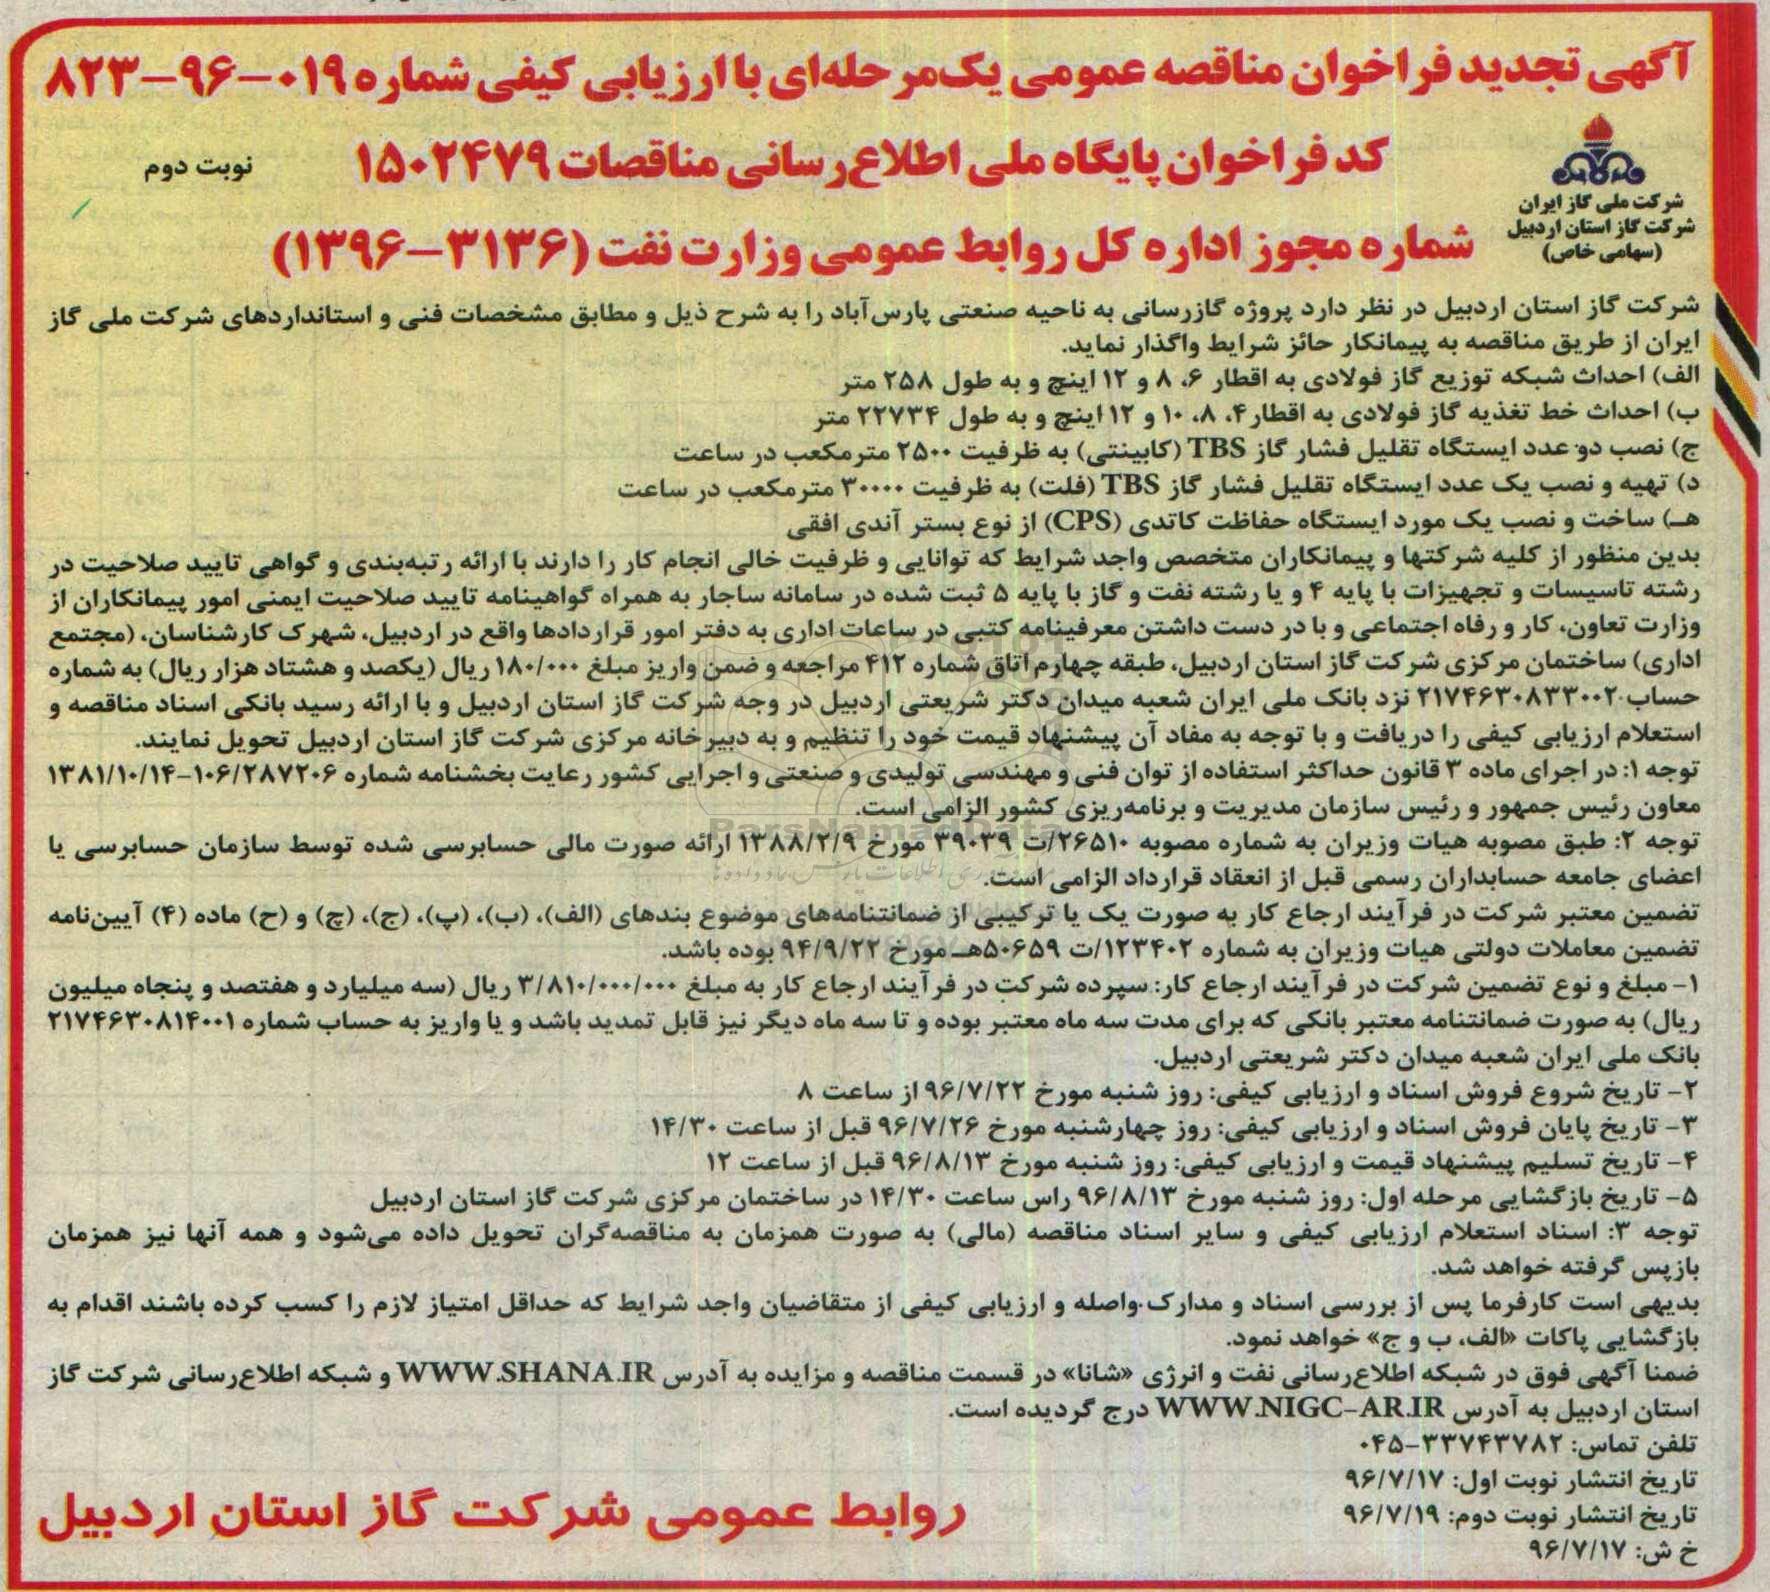 آگهی تجدید فراخوان مناقصه عمومی یک‌مرحله‌ای با ارزیابی کیفی شماره ۰۱۹-۹۶-۸۲۳
کد فراخوان پایگاه ملی اطلاع‌رسانی مناقصات ۱۵۰۲۴۷۹
نوبت دوم
شرکت ملی گاز ایران
شرکت گاز استان اردبیل
(سهامی خاص)
شماره مجوز اداره کل روابط عمومی وزارت نفت (۳۱۳۶-۱۳۹۶)
شرکت گاز استان اردبیل در نظر دارد پروژه گازرسانی به ناحیه صنعتی پارس‌آباد را به شرح ذیل و مطابق مشخصات فنی و استانداردهای شرکت ملی گاز
ایران از طریق مناقصه به پیمانکار حائز شرایط واگذار نماید.
الف) احداث شبکه توزیع گاز فولادی به اقطار ۶، ۸ و ۱۲ اینچ و به طول ۲۵۸ متر
ب) احداث خط تغذیه گاز فولادی به اقطار ۴، ۸، ۱۰ و ۱۲ اینچ و به طول ۲۲۷۳۴ متر
ج) نصب دو عدد ایستگاه تقلیل فشار گاز TBS (کابینتی) به ظرفیت ۲۵۰۰ مترمکعب در ساعت
د) تهیه و نصب یک عدد ایستگاه تقلیل فشار گاز TBS (فلت) به ظرفیت ۳۰۰۰۰ مترمکعب در ساعت
هـ) ساخت و نصب یک مورد ایستگاه حفاظت کاتدی (CPS) از نوع بستر آندی افقی
بدین منظور از کلیه شرکتها و پیمانکاران متخصص واجد شرایط که توانایی و ظرفیت خالی انجام کار را دارند با ارائه رتبه‌بندی و گواهی تایید صلاحیت در
رشته تاسیسات و تجهیزات با پایه ۴ و یا رشته نفت و گاز با پایه ۵ ثبت شده در سامانه ساجار به همراه گواهینامه تایید صلاحیت ایمنی امور پیمانکاران از
وزارت تعاون، کار و رفاه اجتماعی و با در دست داشتن معرفینامه کتبی در ساعات اداری به دفتر امور قراردادها واقع در اردبیل، شهرک کارشناسان، (مجتمع
اداری) ساختمان مرکزی شرکت گاز استان اردبیل، طبقه چهارم اتاق شماره ۴۱۲ مراجعه و ضمن واریز مبلغ ۱۸۰/۰۰۰ ریال (یکصد و هشتاد هزار ریال) به شماره
حساب ۲۱۷۴۶۳۰۸۳۳۰۰۲ نزد بانک ملی ایران شعبه میدان دکتر شریعتی اردبیل در وجه شرکت گاز استان اردبیل و با ارائه رسید بانکی اسناد مناقصه و
استعلام ارزیابی کیفی را دریافت و با توجه به مفاد آن پیشنهاد قیمت خود را تنظیم و به دبیرخانه مرکزی شرکت گاز استان اردبیل تحویل نمایند.
توجه ۱: در اجرای ماده ۳ قانون حداکثر استفاده از توان فنی و مهندسی تولیدی و صنعتی و اجرایی کشور رعایت بخشنامه شماره ۱۰۶/۲۸۷۲۰۶-۱۳۸۱/۱۰/۱۴
معاون رئیس جمهور و رئیس سازمان مدیریت و برنامه‌ریزی کشور الزامی است.
توجه ۲: طبق مصوبه هیات وزیران به شماره مصوبه ۲۶۵۱۰/ت ۳۹۰۳۹ مورخ ۱۳۸۸/۲/۹ ارائه صورت مالی حسابرسی شده توسط سازمان حسابرسی یا
اعضای جامعه حسابداران رسمی قبل از انعقاد قرارداد الزامی است.
تضمین معتبر شرکت در فرآیند ارجاع کار به صورت یک یا ترکیبی از ضمانتنامه‌های موضوع بندهای (الف)، (ب)، (پ)، (ج)، (چ) و (ح) ماده (۴) آیین‌نامه
تضمین معاملات دولتی هیات وزیران به شماره ۱۲۳۴۰۲/ت ۵۰۶۵۹هـ مورخ ۹۴/۹/۲۲ بوده باشد.
۱- مبلغ و نوع تضمین شرکت در فرآیند ارجاع کار: سپرده شرکت در فرآیند ارجاع کار به مبلغ ۳/۸۱۰/۰۰۰/۰۰۰ ریال (سه میلیارد و هفتصد و پنجاه میلیون
ریال) به صورت ضمانتنامه معتبر بانکی که برای مدت سه ماه معتبر بوده و تا سه ماه دیگر نیز قابل تمدید باشد و یا واریز به حساب شماره ۲۱۷۴۶۳۰۸۱۴۰۰۱
بانک ملی ایران شعبه میدان دکتر شریعتی اردبیل.
۲- تاریخ شروع فروش اسناد و ارزیابی کیفی: روز شنبه مورخ ۹۶/۷/۲۲ از ساعت ۸
۳- تاریخ پایان فروش اسناد و ارزیابی کیفی: روز چهارشنبه مورخ ۹۶/۷/۲۶ قبل از ساعت ۱۴/۳۰
۴- تاریخ تسلیم پیشنهاد قیمت و ارزیابی کیفی: روز شنبه مورخ ۹۶/۸/۱۳ قبل از ساعت ۱۲
۵- تاریخ بازگشایی مرحله اول: روز شنبه مورخ ۹۶/۸/۱۳ راس ساعت ۱۴/۳۰ در ساختمان مرکزی شرکت گاز استان اردبیل
توجه ۳: اسناد استعلام ارزیابی کیفی و سایر اسناد مناقصه (مالی) به صورت همزمان به مناقصه‌گران تحویل داده می‌شود و همه آنها نیز همزمان
بازپس گرفته خواهد شد.
بدیهی است کارفرما پس از بررسی اسناد و مدارک واصله و ارزیابی کیفی از متقاضیان واجد شرایط که حداقل امتیاز لازم را کسب کرده باشند اقدام به
بازگشایی پاکات «الف، ب و ج» خواهد نمود.
ضمنا آگهی فوق در شبکه اطلاع‌رسانی نفت و انرژی «شانا» در قسمت مناقصه و مزایده به آدرس WWW.SHANA.IR و شبکه اطلاع‌رسانی شرکت گاز
استان اردبیل به آدرس WWW.NIGC-AR.IR درج گردیده است.
تلفن تماس: ۳۳۷۴۳۷۸۲-۰۴۵
تاریخ انتشار نوبت اول: ۹۶/۷/۱۷
تاریخ انتشار نوبت دوم: ۹۶/۷/۱۹
خ ش: ۹۶/۷/۱۷
روابط عمومی شرکت گاز استان اردبیل